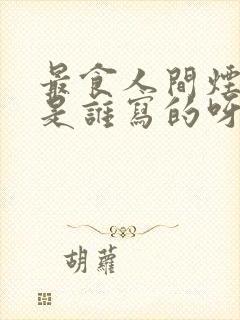 最食人間煙
是誰寫的呀
胡蘿